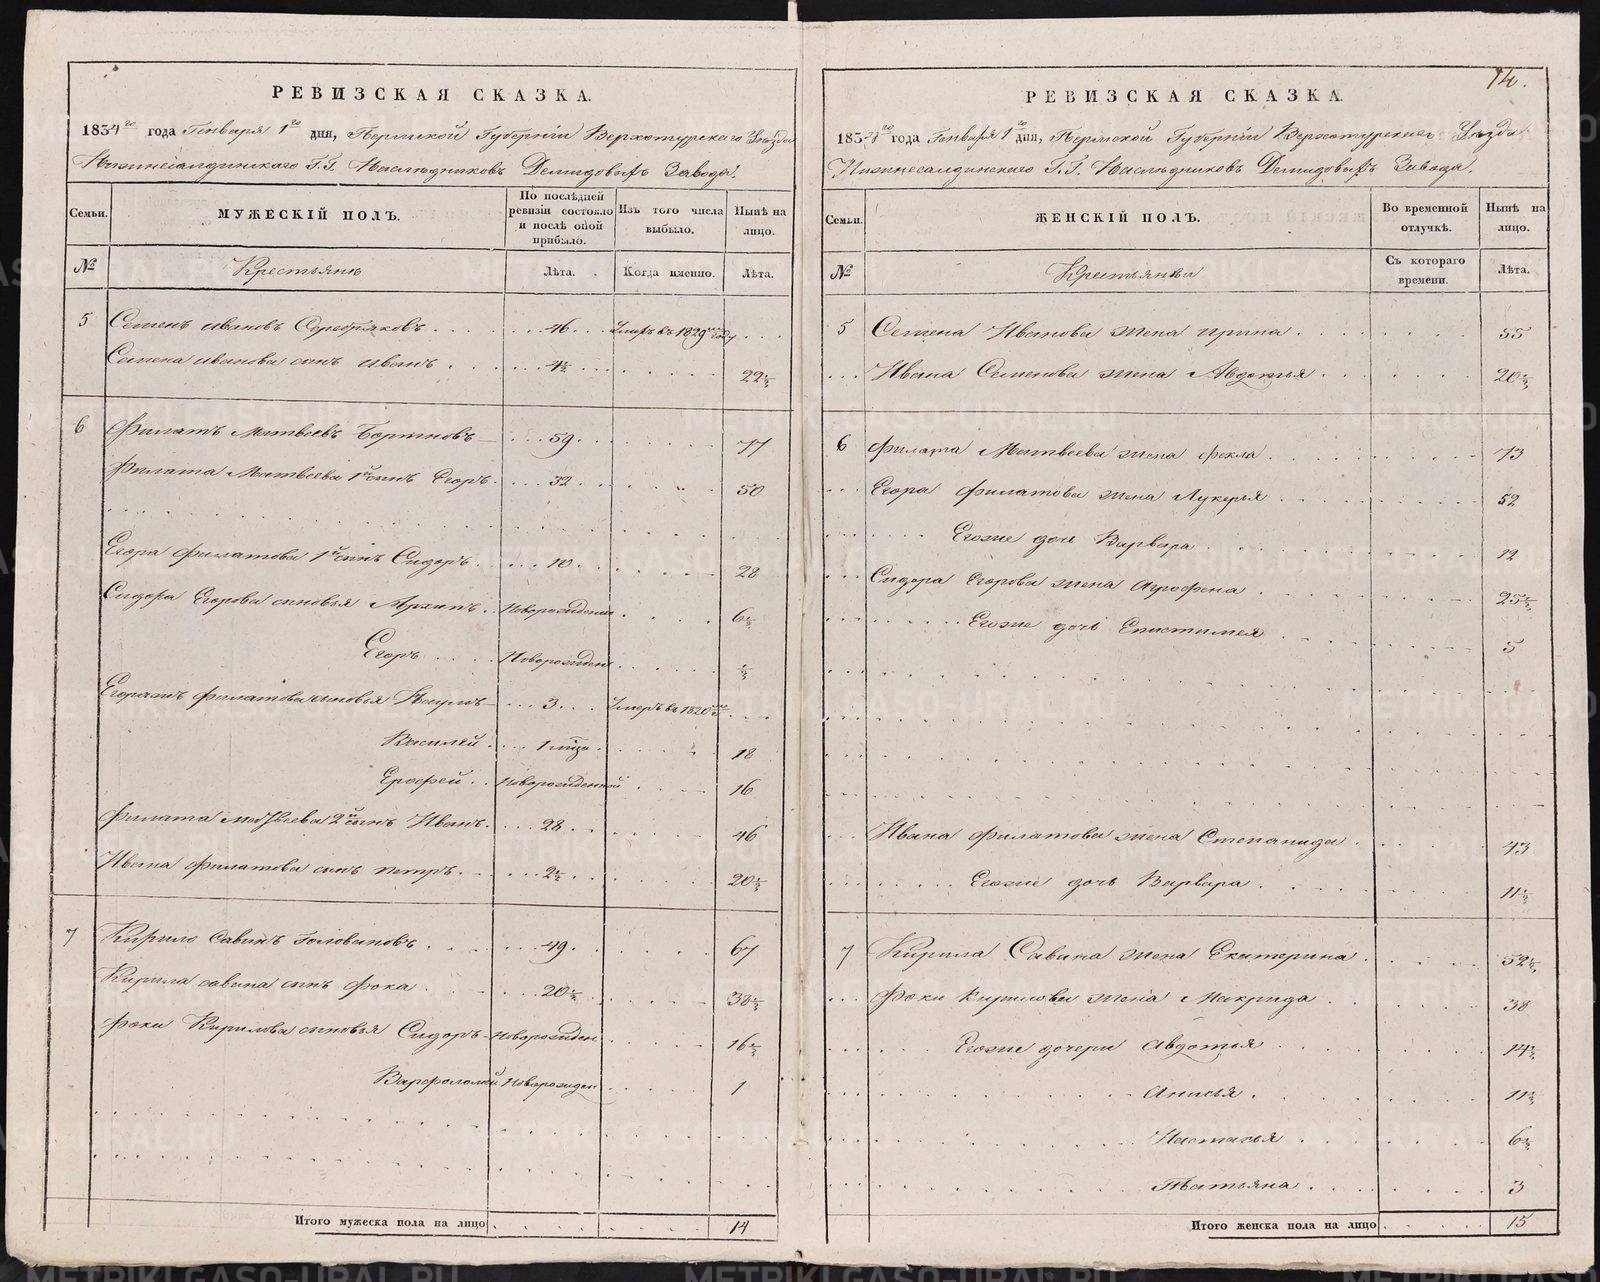 РЕВИЗСКАЯ СКАЗКА.
1834го года Генваря 1го дня, Пермской Губернiи Верхотурскаго Уѣзда
Нижнесалдинскаго Г.Г. Наслѣдниковъ Демидовыхъ Завода.
Семьи.
МУЖЕСКIЙ ПОЛЪ.
По послѣдней ревизiи состояло и послѣ оной прибыло.
Изъ того числа выбыло.
Нынѣ на лицо.
№
Крестьяне
Лѣта.
Когда именно.
Лѣта.
5 Семенъ Ивановъ Серебряковъ 46 Умеръ въ 1829 году
Семена Иванова сынъ Иванъ 4½ 22½
6 Филатъ Матвеевъ 59 77
Филата Матвеева 1й сынъ Егоръ 32 50
Егора Филатова 1й сынъ Сидоръ 10 28
Сидора Егорова сыновья Архипъ Новорожденн 6½
Егоръ Новорожден ½
Егора Филатова сыновья 3 Умеръ въ 1820
Василей 1 18
Ерофей Новорожденной 16
Филата Матвеева 2й сынъ Иванъ 28 46
Ивана Филатова сынъ Петръ 2½ 20½
7 Кирило Савинъ Головановъ 49 67
Кирила Савина сынъ Фока 20½ 38½
Фоки Кирилова сыновья Сидоръ Новорожден 16½
Варфоломей Новорожден 1
Итого мужеска пола на лицо 14
14.
РЕВИЗСКАЯ СКАЗКА.
1834го года Генваря 1го дня, Пермской Губернiи Верхотурскаго Уѣзда
Нижнесалдинскаго Г.Г. Наслѣдниковъ Демидовыхъ Завода.
Семьи.
ЖЕНСКIЙ ПОЛЪ.
Во временной отлучкѣ.
Нынѣ на лицо.
№
Крестьянки
Съ котораго времени.
Лѣта.
5 Семена Иванова жена Ирина 55
Ивана Семенова жена Авдотья 20½
6 Филата Матвеева жена Фекла 73
Егора Филатова жена Лукерья 52
Егоже дочь Варвара 12
Сидора Егорова жена Агрофена 25½
Егоже дочь Епистимея 5
Ивана Филатова жена Степанида 43
Егоже дочь Варвара 11½
7 Кирила Савина жена Екатерина 52½
Фоки Кирилова жена Макрида 38
Егоже дочери Авдотья 14½
Анисья 11½
Настасья 6½
Татьяна 3
Итого женска пола на лицо 15
METRIKI.GASO-URAL.RU